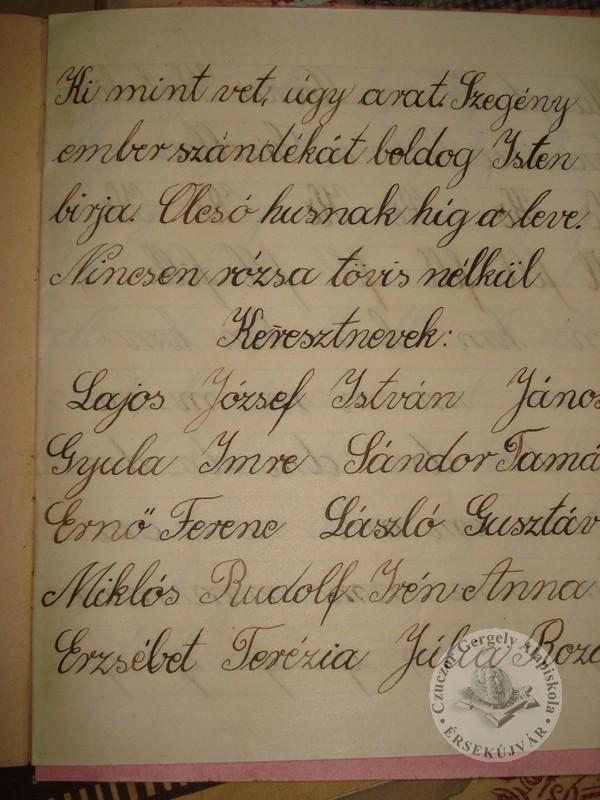 Ki mint vet, úgy arat. Szegény
ember szándékát boldog Isten
birja. Olcsó husnak híg a leve.
Nincsen rózsa tövis nélkül
Keresztnevek:
Lajos József István János
Gyula Imre Sándor Tamá
Ernő Ferenc László Gusztáv
Miklós Rudolf. Irén Anna
Erzsébet Terézia Júlia Roza
Czuczor Gergely Alapiskola
• ÉRSEKÚJVÁR •